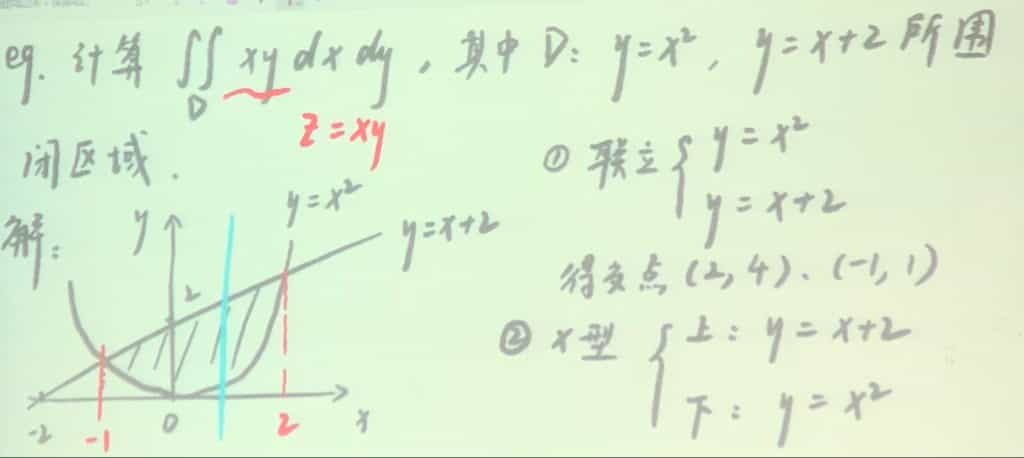 eg. 计算 ∬_D xy dx dy, 其中 D: y=x², y=x+2 所围
z=xy
闭区域.
解:
y
y=x²
y=x+2
2
-2
-1
0
2
x
① 联立 { y=x²
y=x+2
得交点 (2,4)、(-1,1)
② x型 { 上: y=x+2
下: y=x²